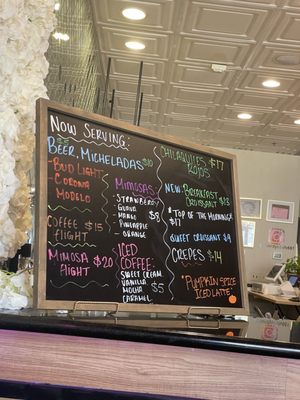 Now Serving:
Beer, Micheladas $10
- Bud Light
- Corona
- Modelo
Coffee $15
flight
Mimosa $20
flight
Mimosas
- Strawberry
- Guava
- Mango $8
- Pineapple
- Orange
Iced
Coffee:
Sweet Cream
Vanilla
Mocha $5
Caramel
Chilaquiles $17
Rojos
New: Breakfast
Croissant $13
* Top of the Morning *
$17
Sweet Croissant $9
Crepes $14
*Pumpkin Spice
Iced Latte*